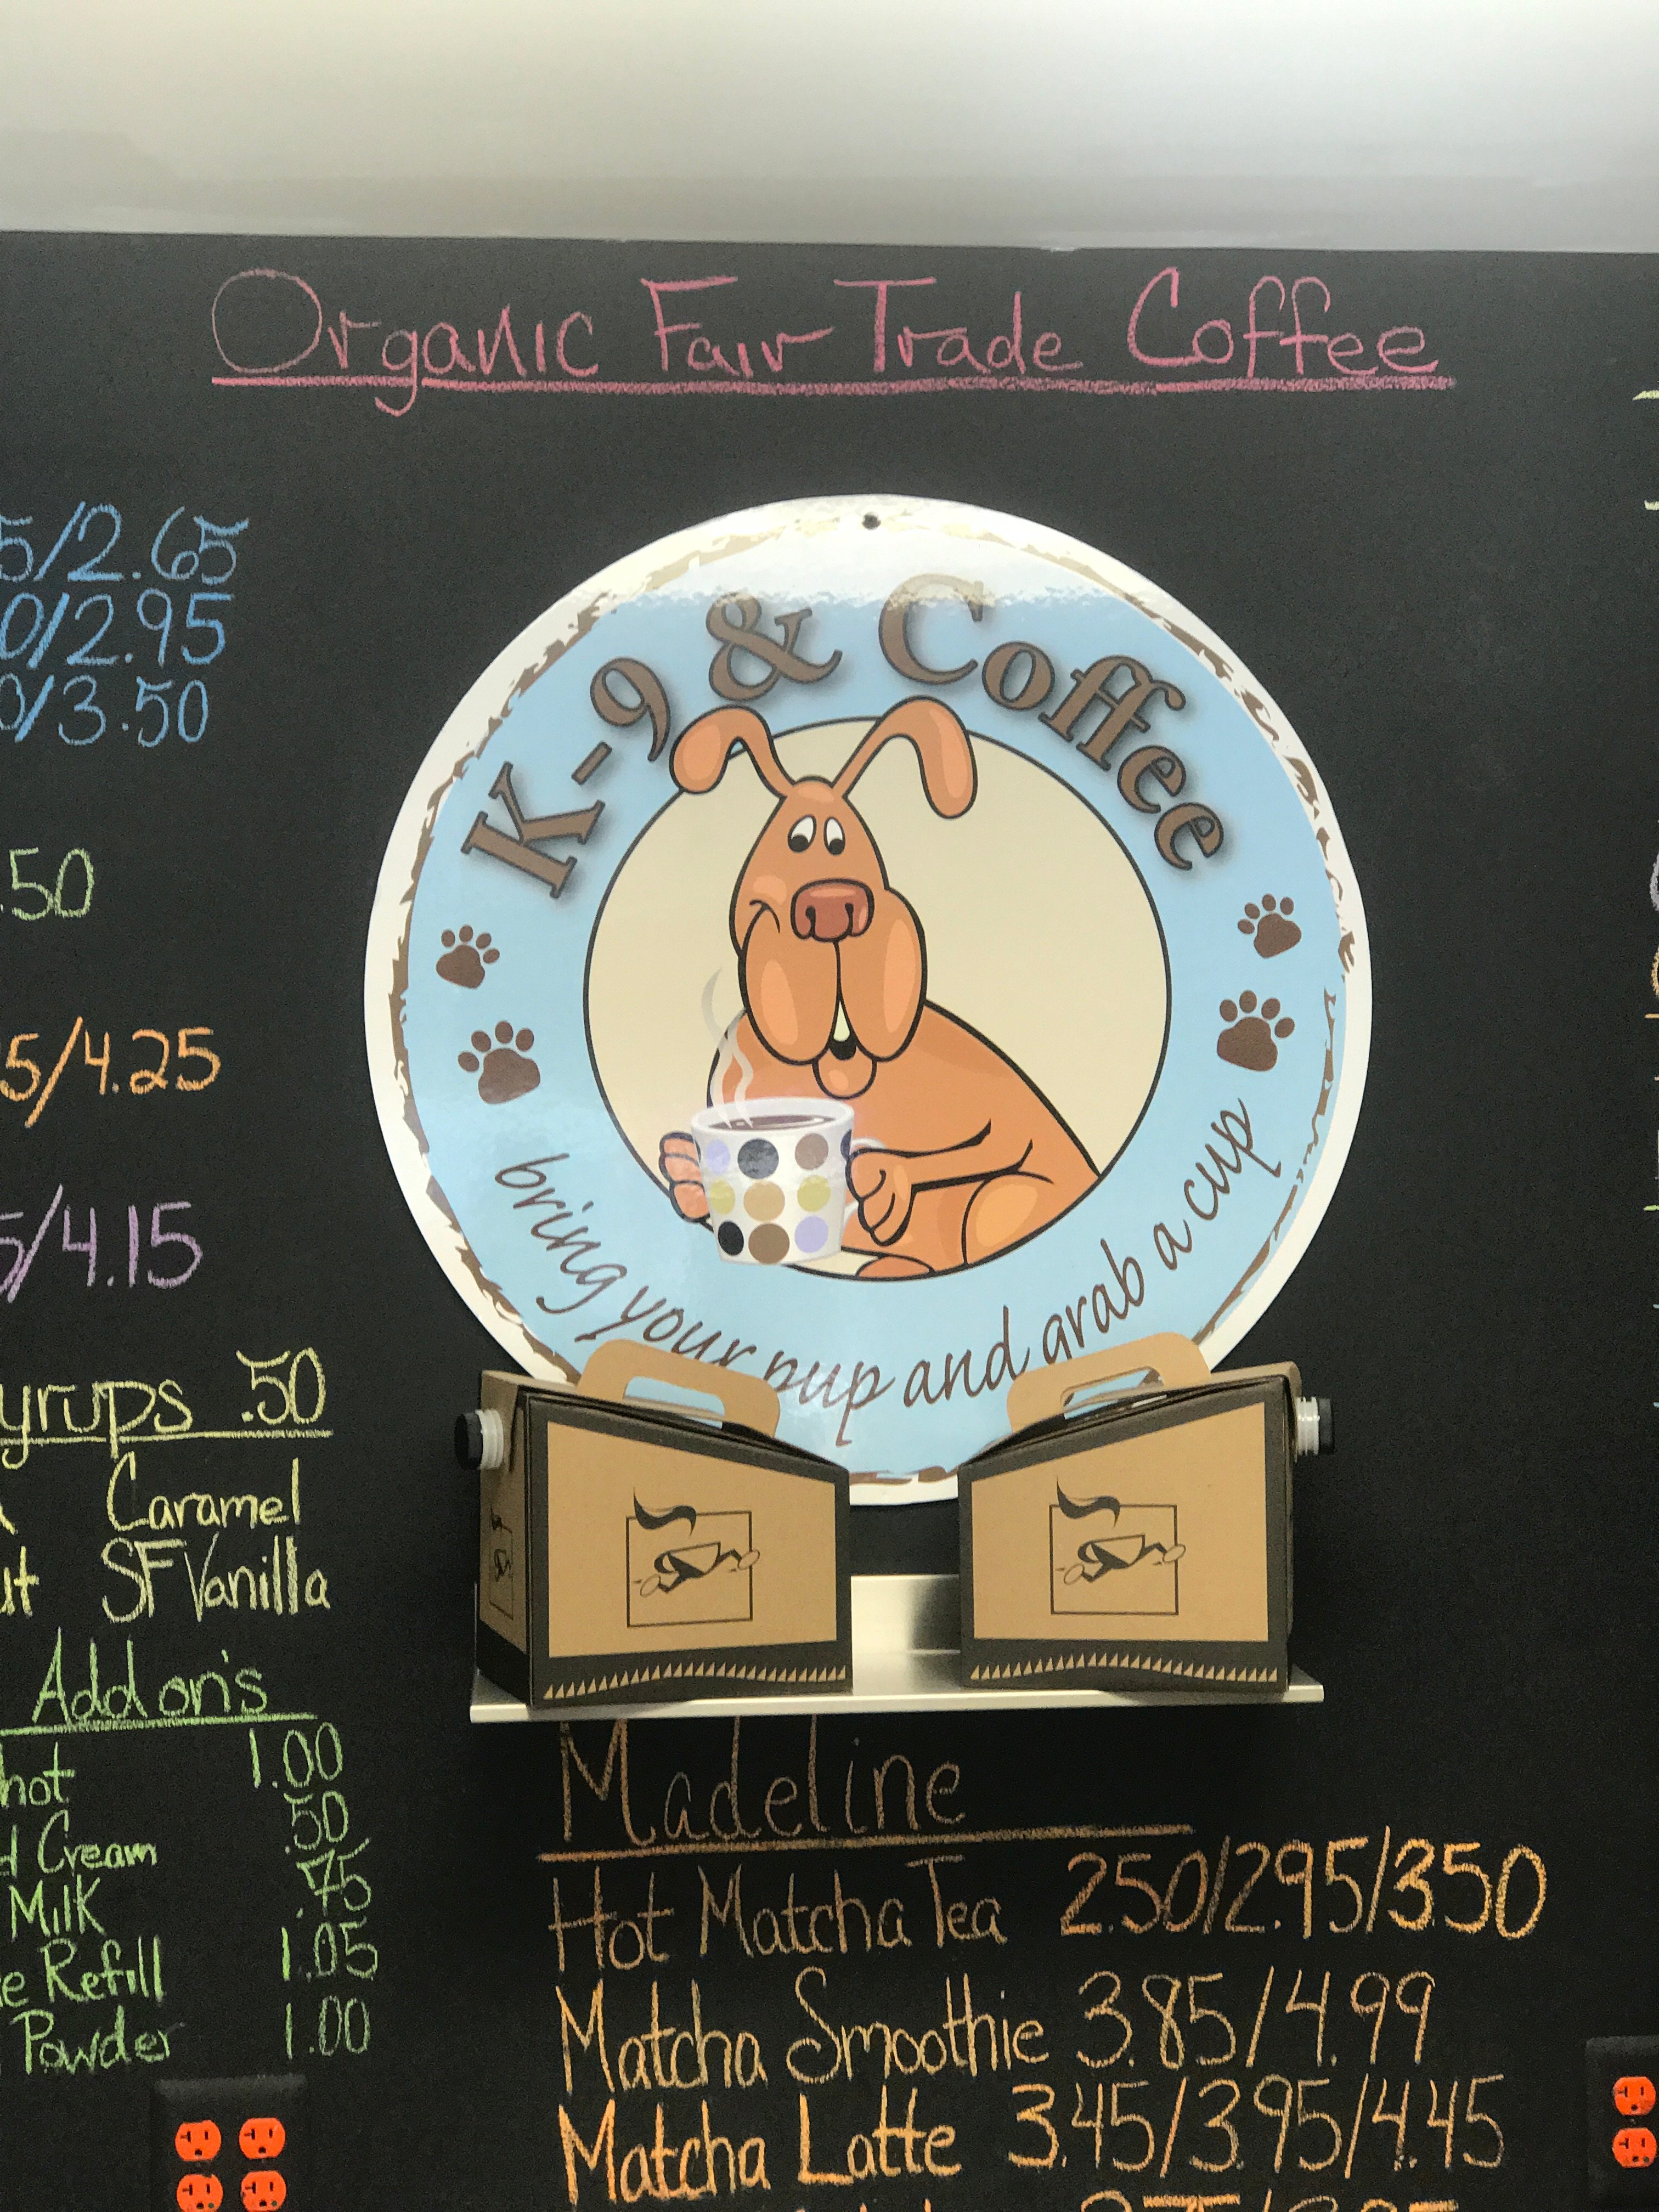 Organic Fair Trade Coffee
K-9 & Coffee
bring your pup and grab a cup
/2.65
/2.95
/3.50
.50
/4.25
/4.15
.50
Caramel
SF Vanilla
Add on's
1.00
Cream .50
Milk .75
Refill 1.05
Powder 1.00
Madeline
Hot Matcha Tea 2.50/2.95/3.50
Matcha Smoothie 3.85/4.99
Matcha Latte 3.45/3.95/4.45